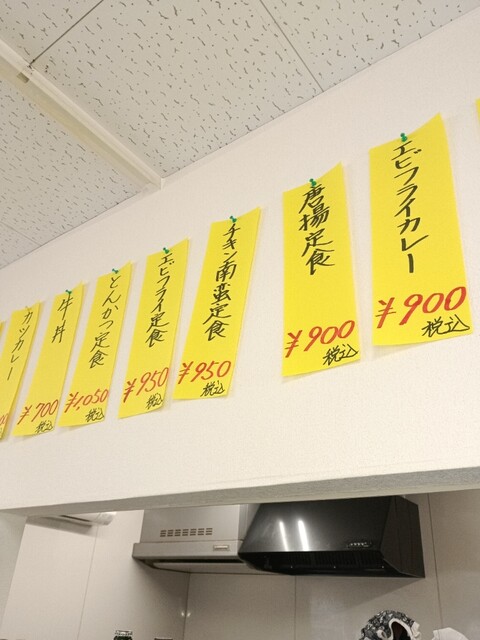 エビフライカレー
¥900
税込
唐揚定食
¥900
税込
チキン南蛮定食
¥950
税込
エビフライ定食
¥950
税込
とんかつ定食
¥1,050
税込
牛丼
¥700
税込
カツカレー